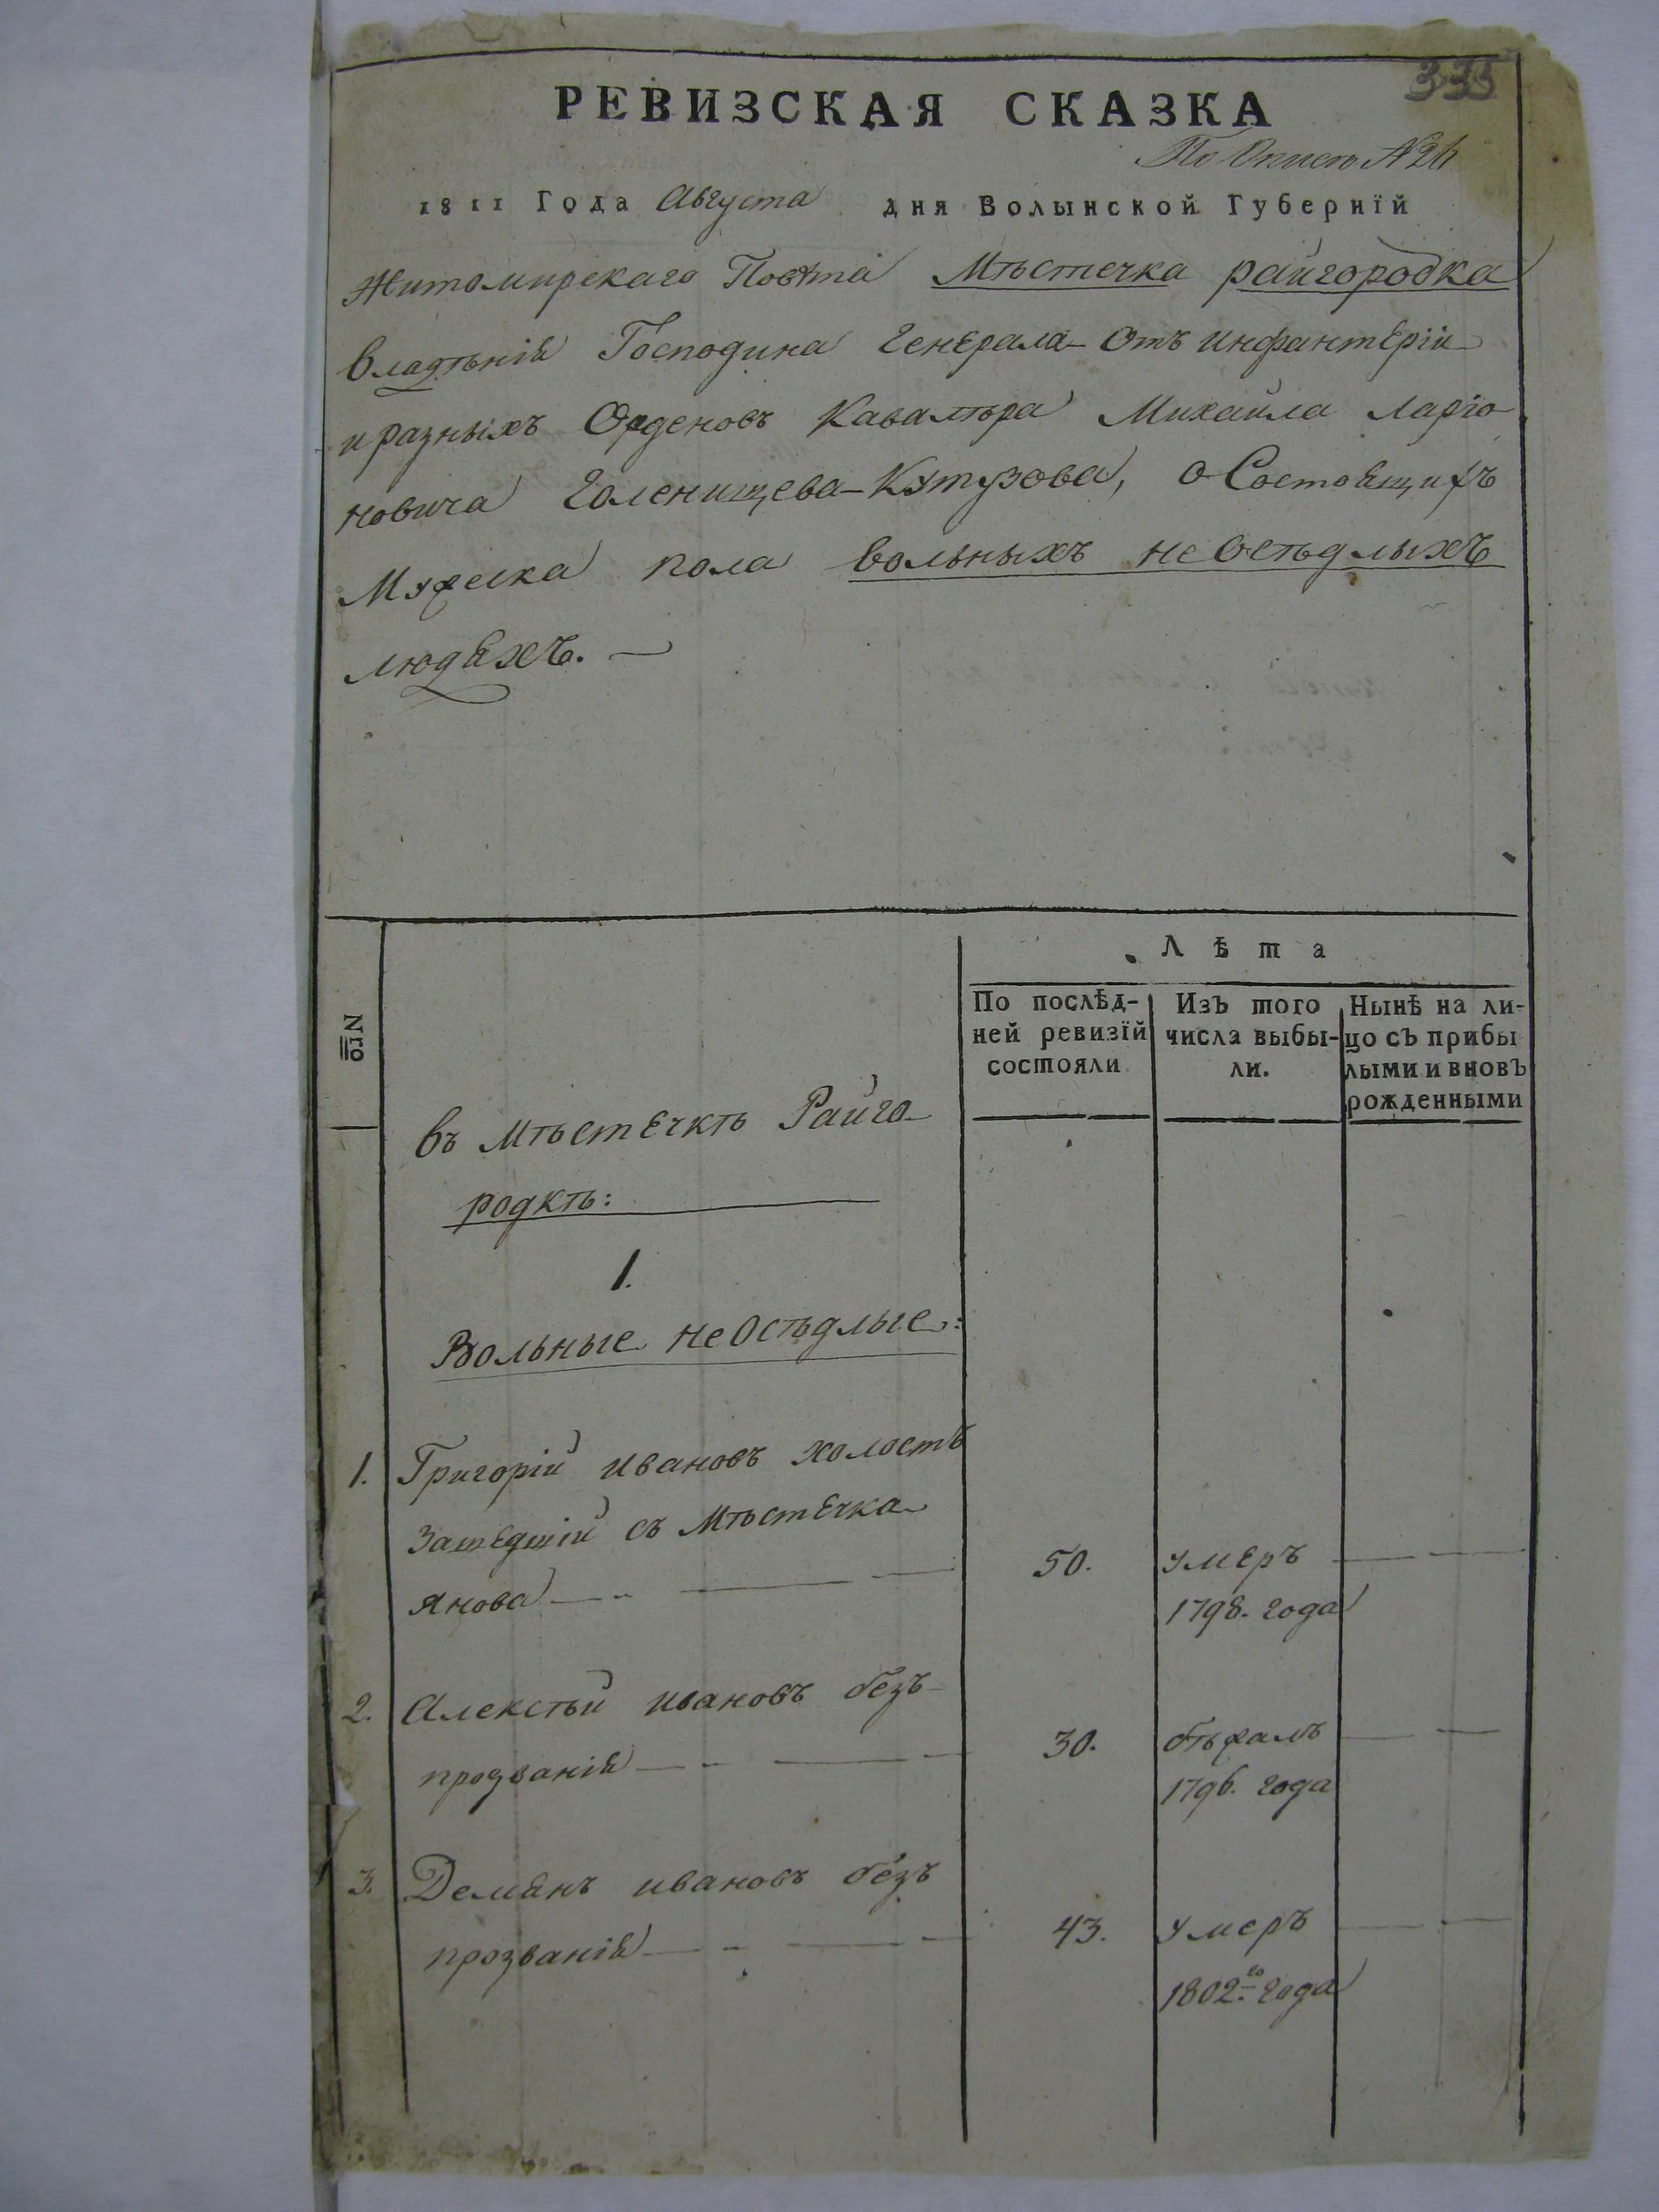 335
РЕВИЗСКАЯ СКАЗКА
По Описѣ №26
1811 Года Августа дня Волынской Губернїй
Житомирскаго Повѣта Мѣстечка райгородка
владѣнія Господина Генерала-Отъ инфантеріи
и разныхъ Орденовъ Кавалѣра Михаила Ларіо-
новича Голенищева-Кутузова, о Состоящихъ
Мужеска пола вольныхъ неосѣдлыхъ
людяхъ.—
Nго
Лѣта
По послѣд-
ней ревизїй
состояли
Изъ того
числа выбы-
ли.
Нынѣ на ли-
цо съ прибы
лыми и вновъ
рожденными
въ Мѣстечкѣ Райго-
родкѣ:
1.
Вольные неосѣдлые:
1. Григорій ивановъ холостъ
зашедшій съ Мѣстечка
Янова — 50. умеръ
1798. года
2. Алексѣй ивановъ безъ
прозванія — 30. бѣжалъ
1796. года
3. Демянъ ивановъ безъ
прозванія — 43. умеръ
1802го года